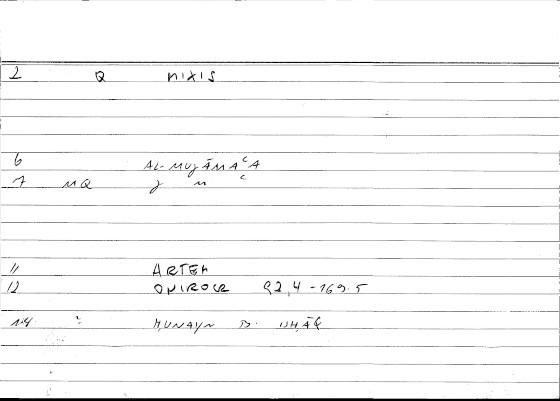 2 Q MIXIS
6 AL-MUJĀMAʿA
7 MQ J M ʿ
11 ARTEM
12 ONIROCR 92,4-169.5
14 : ḤUNAYN B. ISḤĀQ